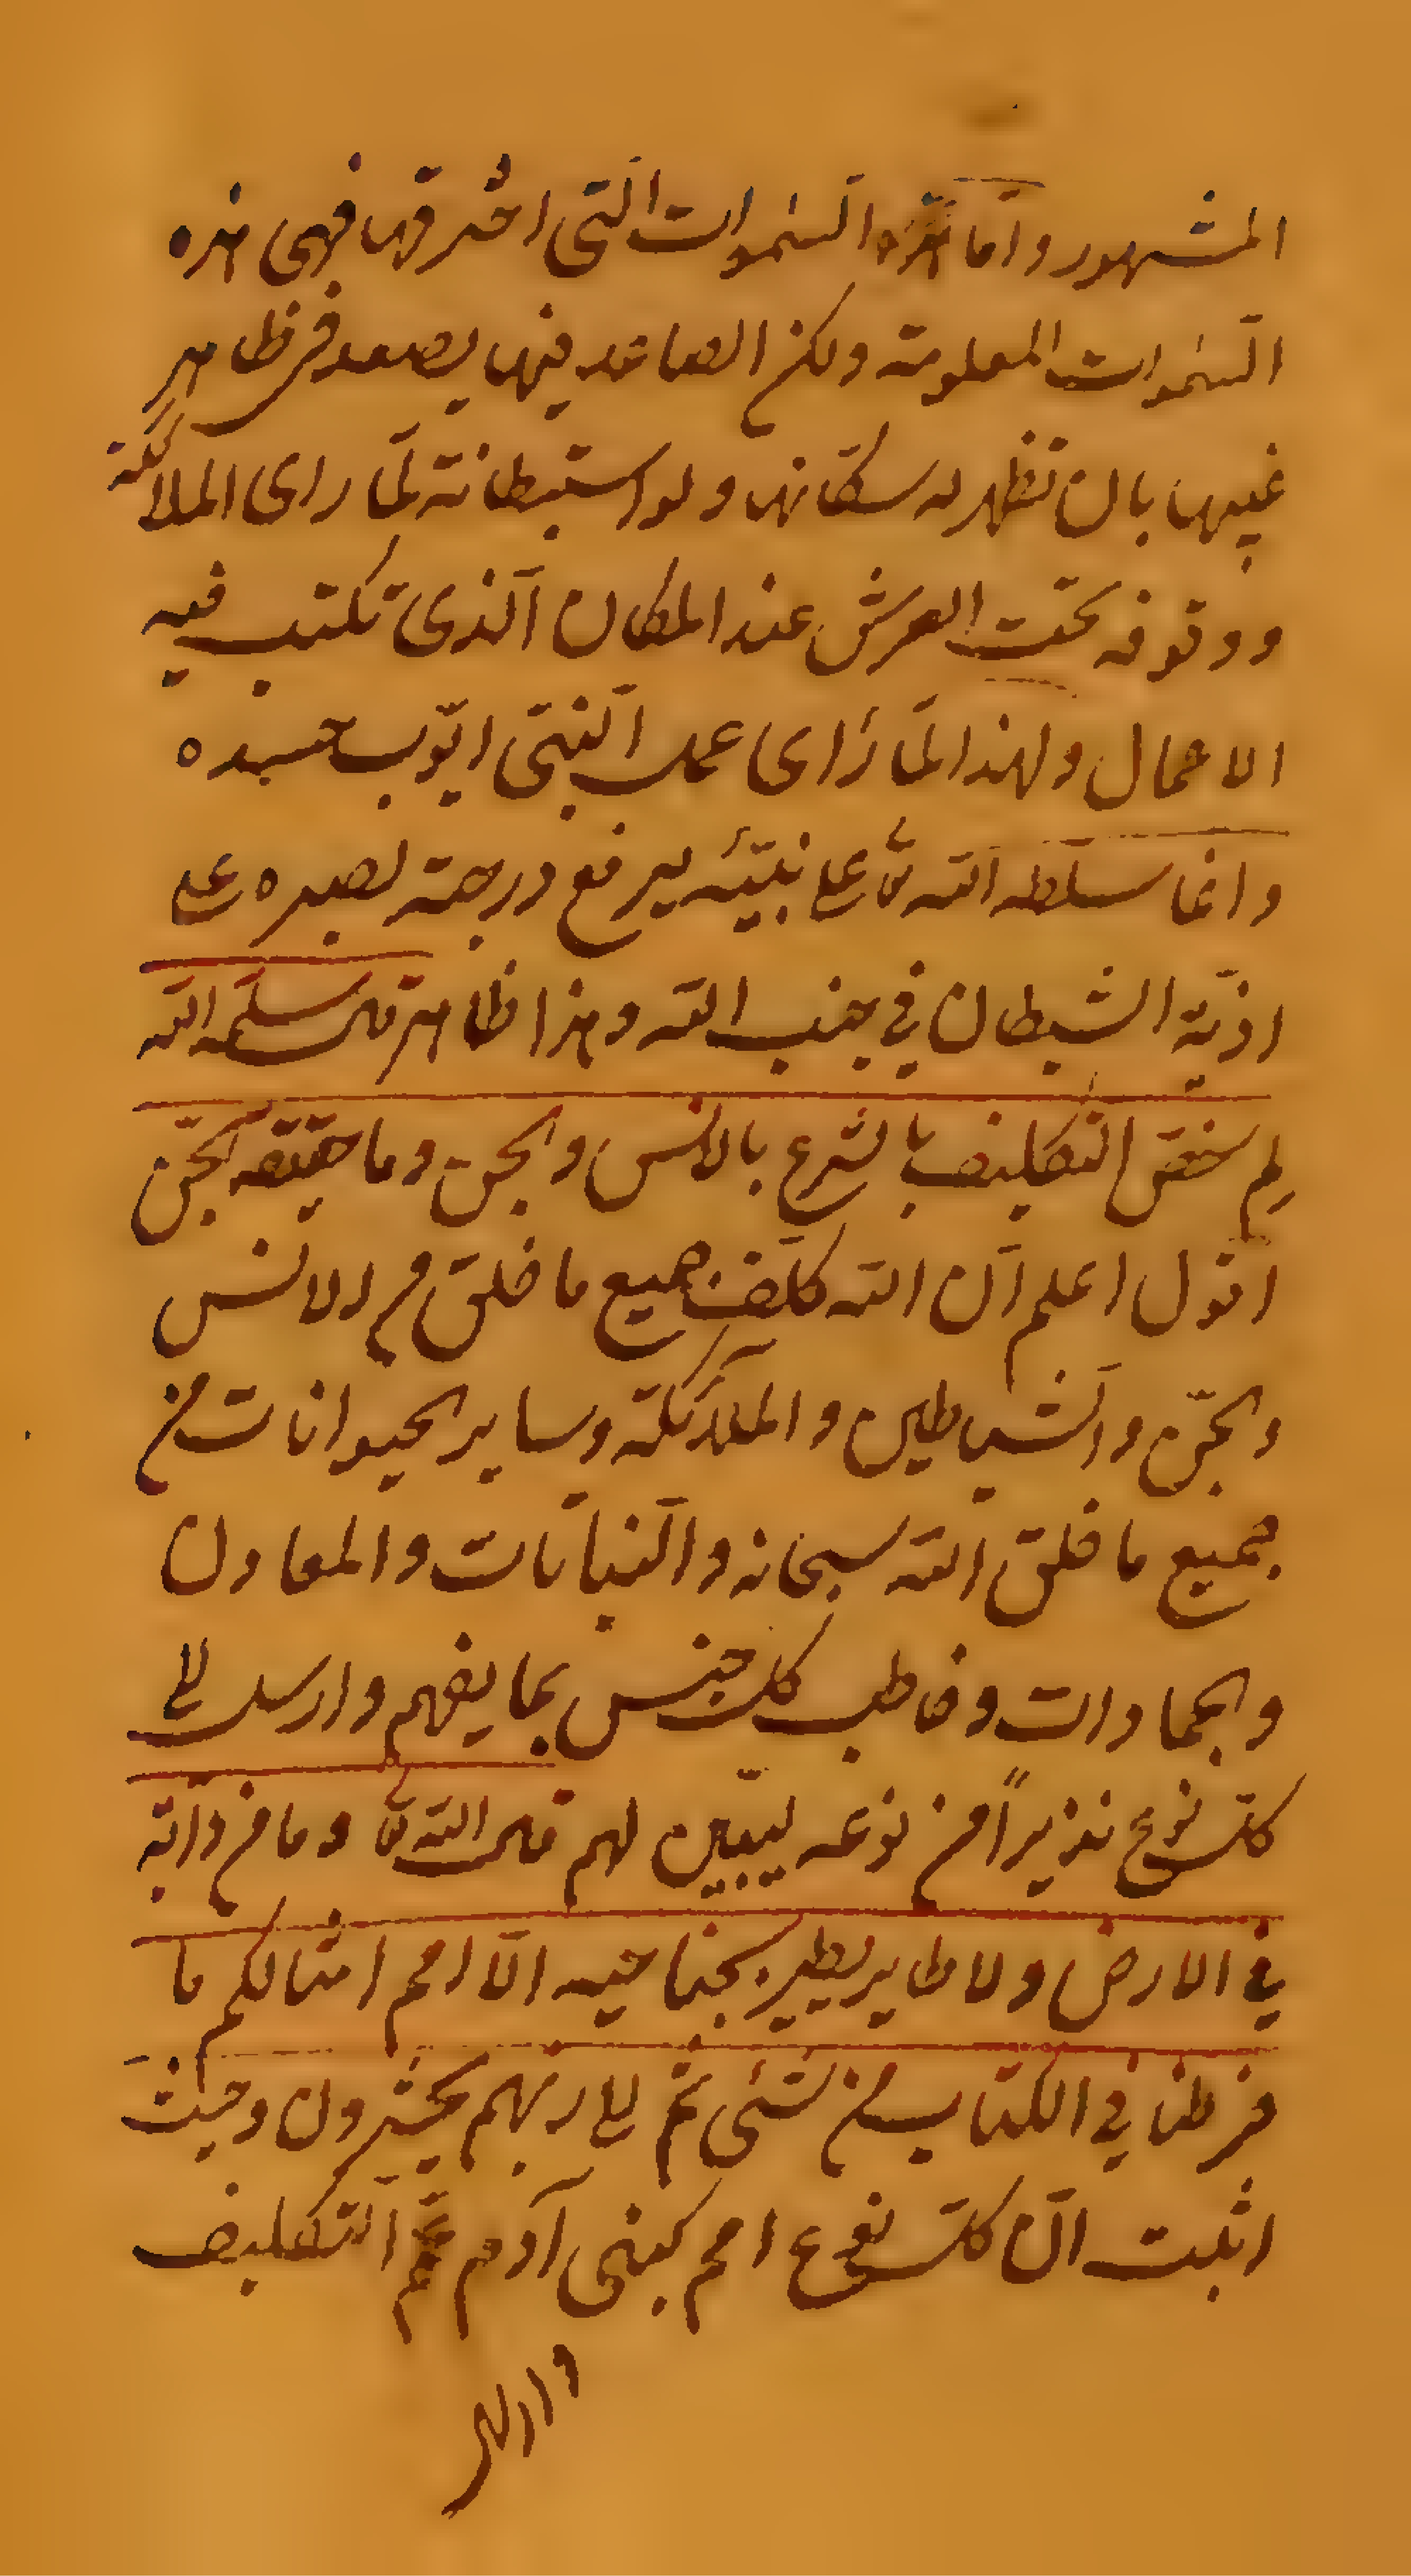 المشهور وامّا هذه السّموات الّتى اخترقها فهى هذه
السّموات المعلومة ولكن الصاعد فيها يصعد فى ظاهر
غيبها بان تظهر له سكّانها ولو استبطانة لمّا راى الملائكة
ووقوفه تحت العرش عند المكان الّذى تكتب فيه
الاعمال ولهذا لمّا رأى عمل النّبىّ ايّوب حسده
وانما سلّطه الله تعٰ على نبيّه ليرفع درجته لصبره على
اذيّة الشيطان في جنب الله وهذا ظاهر قال سلّمه الله
لم يختصّ التكليف بالشرع بالانس والجن وما حقيقه الجنّ
اقول اعلم انّ الله كلّف جميع ما خلق من الانس
والجنّ والشّياطين والملآئكة وساير الحيوانات من
جميع ما خلق الله سبحانه والنّباتات والمعادن
والجمادات وخاطب كل جنس بما يفهم وارسل الى
كلّ نوع نذيراً من نوعه ليبيّن لهم قال الله تعٰ وما من دآبّة
في الارض ولا طاير يطير بجناحيه الّا امم امثالكم ما
فرطنا في الكتاب من شئى ثم الى ربهم يحشرون وحيث
اثبت انّ كلّ نوع امم كبنى آدم عمّ التّكليف
وارسل